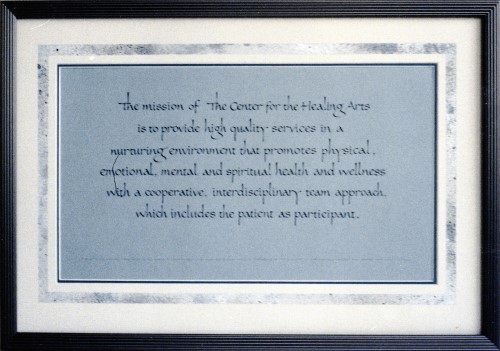 The mission of The Center for the Healing Arts
is to provide high quality services in a
nurturing environment that promotes physical,
emotional, mental and spiritual health and wellness
with a cooperative, interdisciplinary team approach,
which includes the patient as participant.